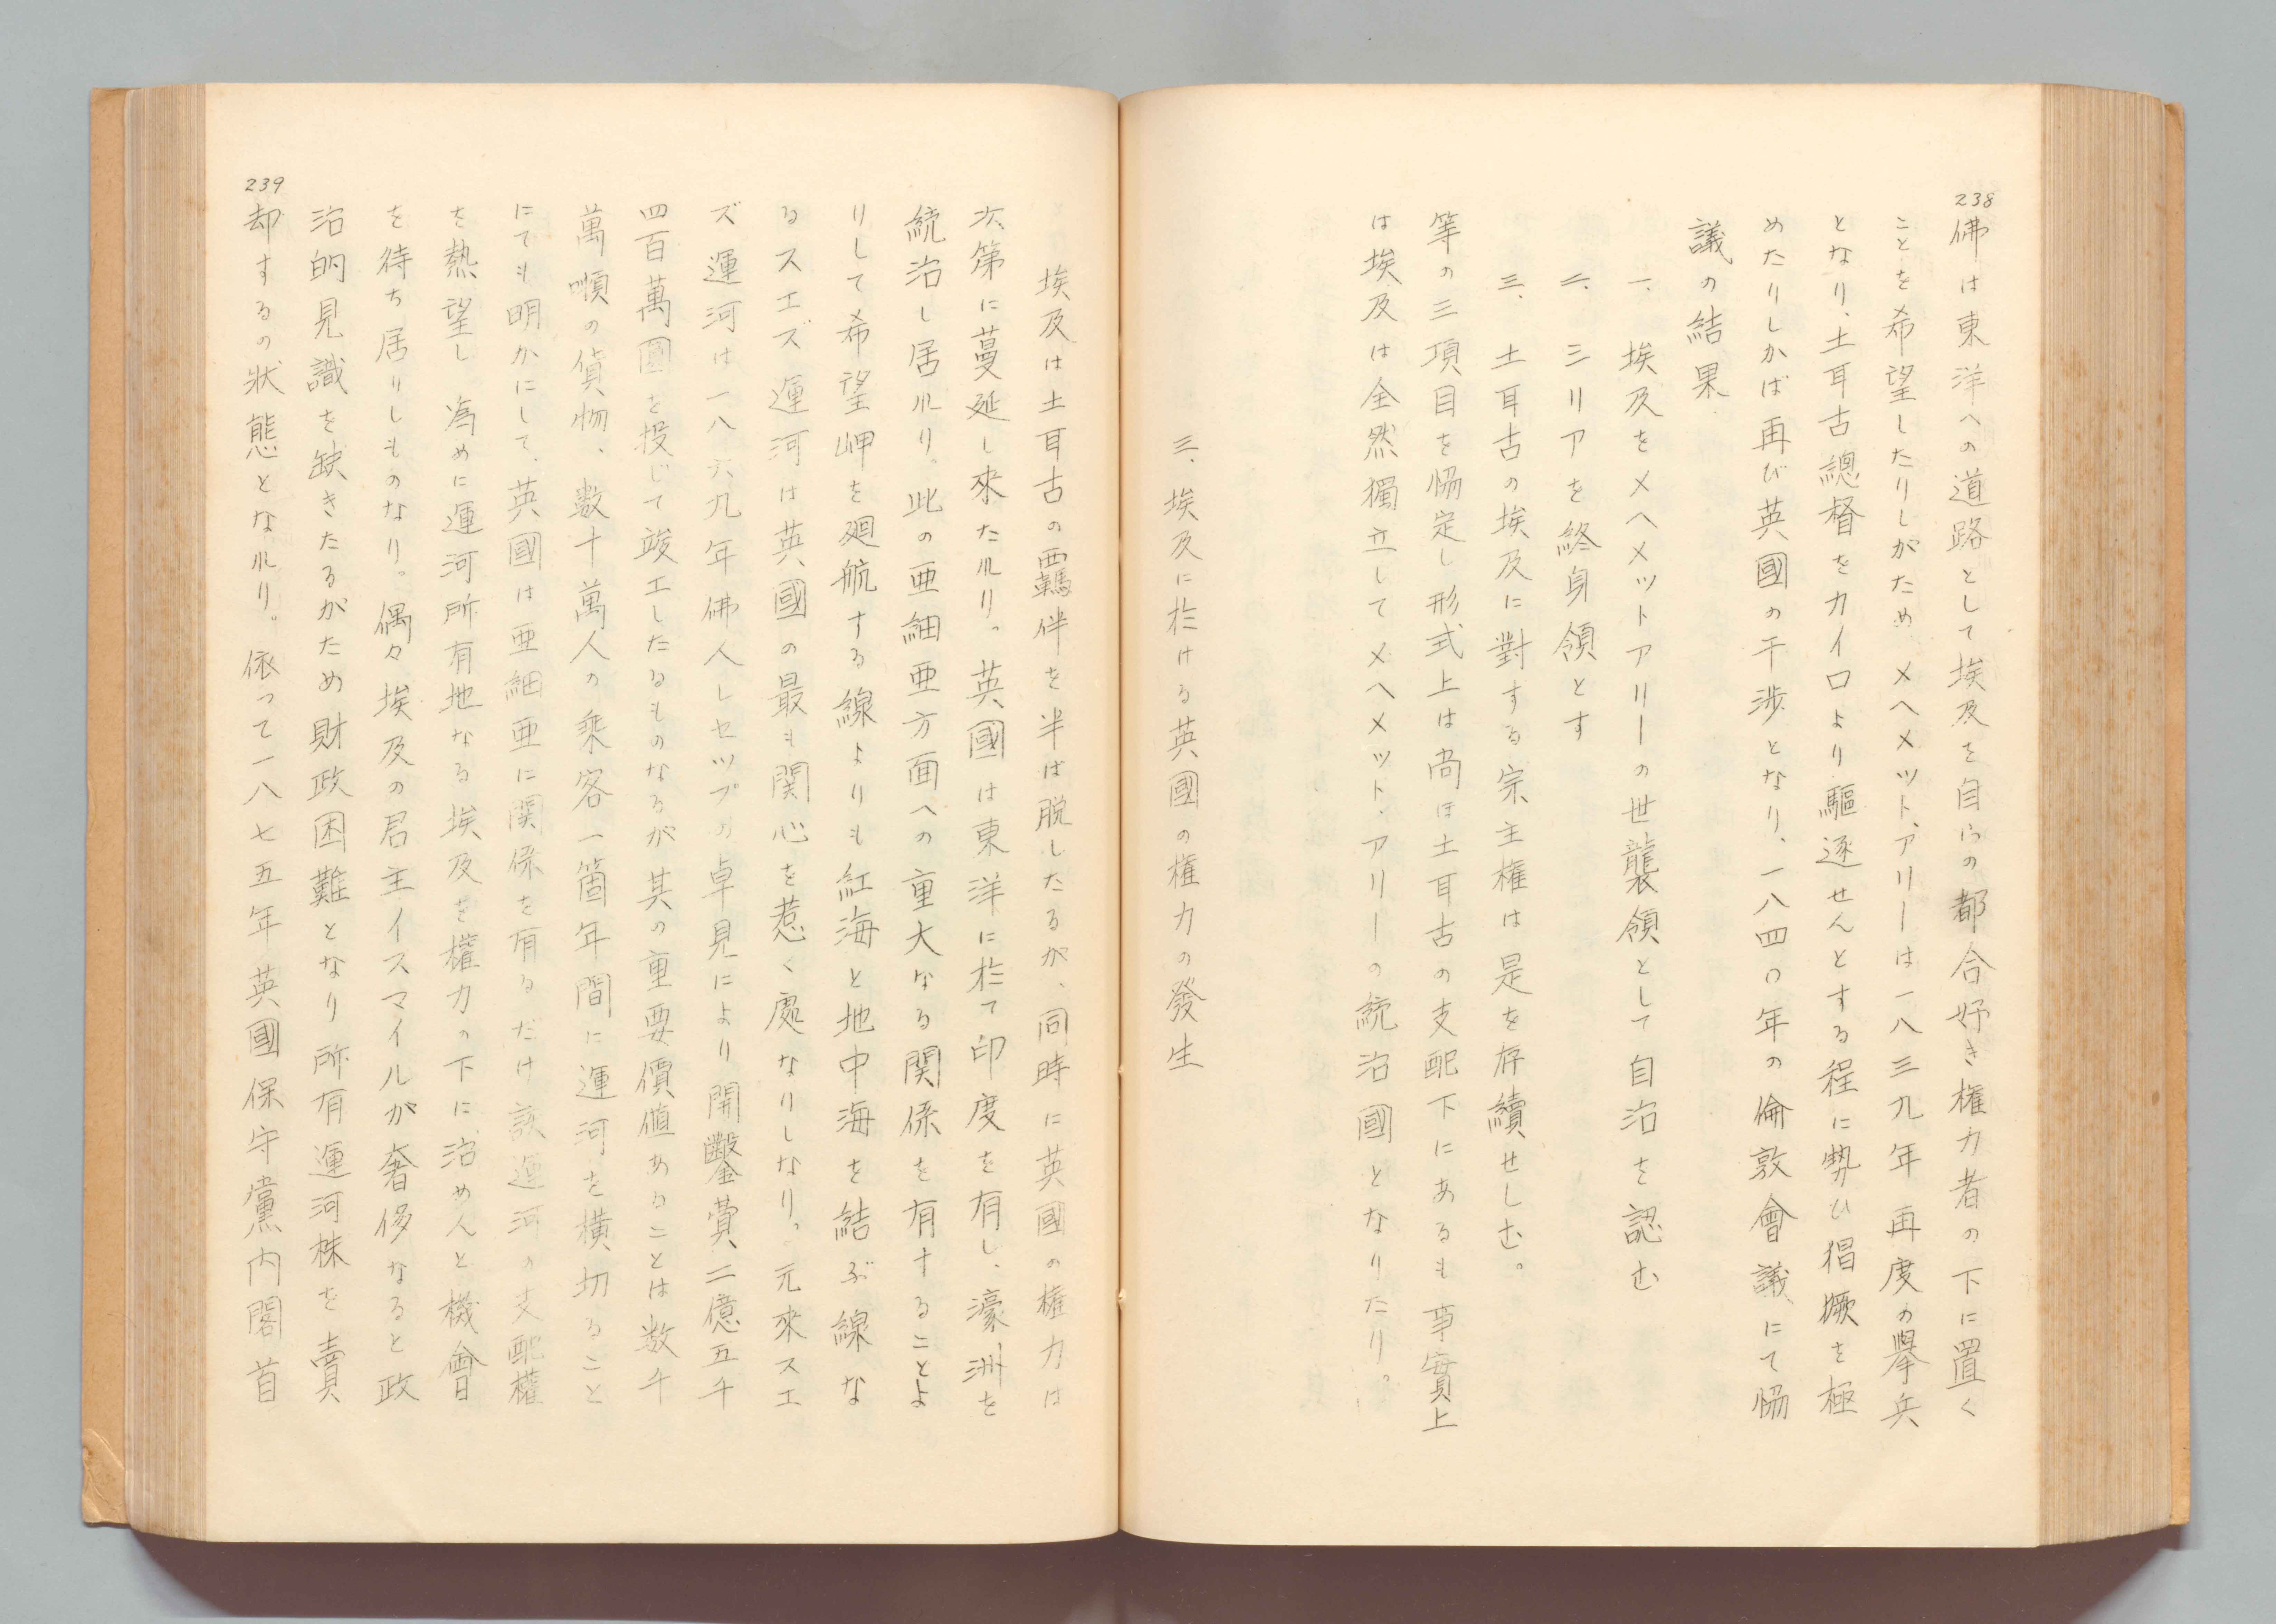 238
佛は東洋への道路として埃及を自らの都合好き権力者の下に置く
ことを希望したりしがため、メヘメット、アリーは一八三九年再度の擧兵
となり、土耳古總督をカイロより驅逐せんとする程に勢ひ猖獗を極
めたりしかば再び英國の干渉となり、一八四〇年の倫敦會議にて協
議の結果、
一、埃及をメヘメットアリーの世襲領として自治を認む
二、シリアを終身領とす
三、土耳古の埃及に對する宗主権は是を存續せしむ。
等の三項目を協定し形式上は尚ほ土耳古の支配下にあるも事實上
は埃及は全然獨立してメヘメット、アリーの統治國となりたり。
三、埃及に於ける英國の権力の發生
埃及は土耳古の羈絆を半ば脱したるが、同時に英國の権力は
次第に蔓延し來たれり。英國は東洋に於て印度を有し、濠洲を
統治し居れり。此の亜細亜方面への重大なる関係を有することよ
りして希望岬を廻航する線よりも紅海と地中海を結ぶ線な
るスエズ運河は英國の最も関心を惹く處なりしなり。元來スエ
ズ運河は一八六九年佛人レセップの卓見により開鑿費二億五千
四百萬圓を投じて竣工したるものなるが其の重要價値あることは数千
萬噸の貨物、数十萬人の乘客一箇年間に運河を横切ること
にても明かにして、英國は亜細亜に関係を有るだけ該運河の支配權
を熱望し為めに運河所有地なる埃及を權力の下に治めんと機會
を待ち居りしものなり。偶々埃及の君主イスマイルが奢侈なると政
治的見識を缺きたるがため財政困難となり所有運河株を賣
239
却するの状態となれり。依って一八七五年英國保守黨内閣首